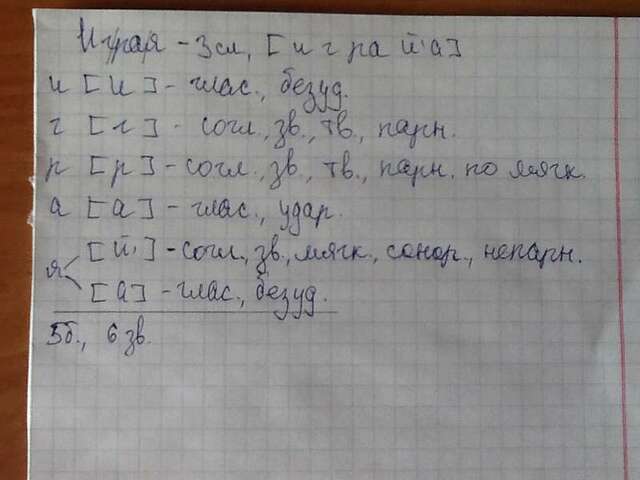 Играя - 3 сл, [и г р а й' а]
и [и] - глас., безуд.
г [г] - согл., зв., тв., парн.
р [р] - согл., зв., тв., парн. по мягк.
а [а] - глас., удар.
я [й'] - согл., зв., мягк., сонор., непарн.
[а] - глас., безуд.
5б., 6 зв.